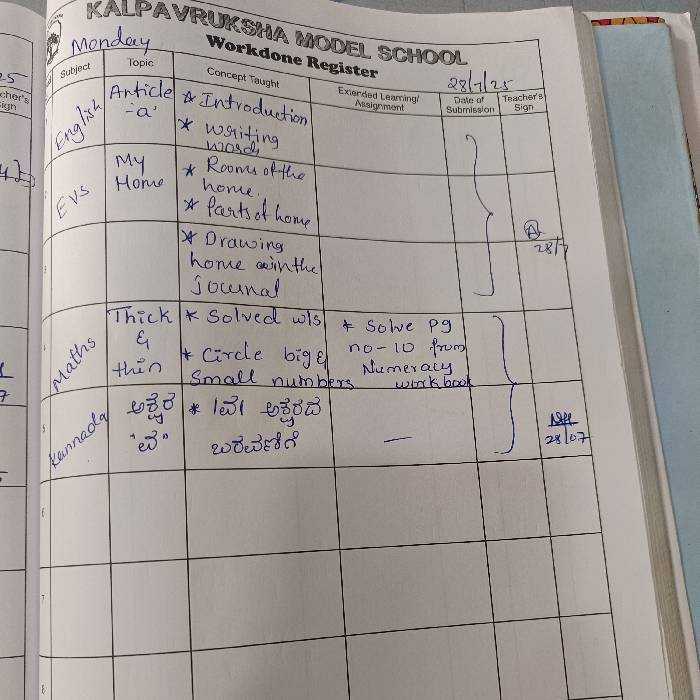 KALPAVRUKSHA MODEL SCHOOL
Workdone Register
Monday
28/7/25
Subject
Topic
Concept Taught
Extended Learning/
Assignment
Date of
Submission
Teacher's
Sign
English
Article
-'a'
* Introduction
* writing
words
EVS
My
Home
* Rooms of the
home.
* Parts of home
* Drawing
home in the
journal
28/7
Maths
Thick
&
thin
* Solved w/s
* Circle big &
Small numbers
* Solve pg
no-10 from
Numeracy
work book
Kannada
ಅಕ್ಷರ
"ವೆ"
* /ವೆ/ ಅಕ್ಷರದ
ಬರವಣಿಗೆ
—
28/07
6
7
8